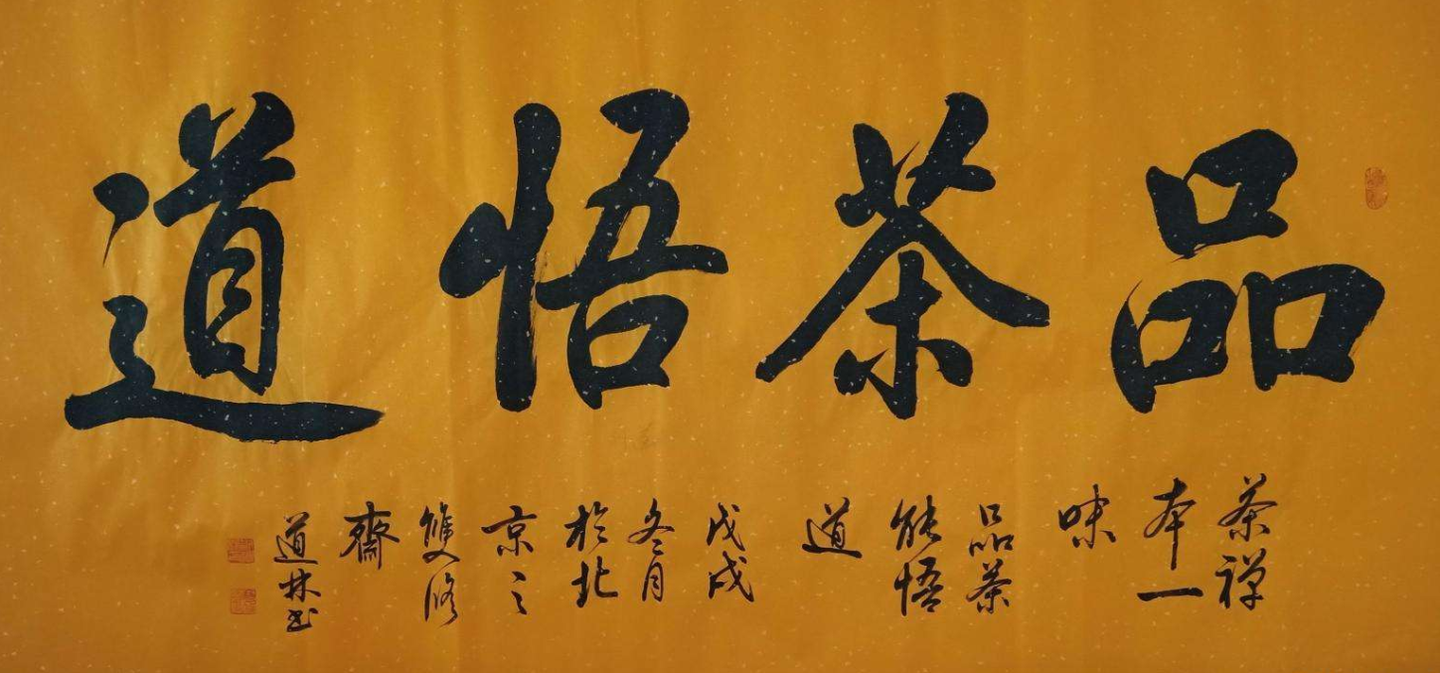 品茶悟道
茶禅
本一
味
品茶
能悟
道
戊戌
冬月
於北
京之
雙修
齋
道林书